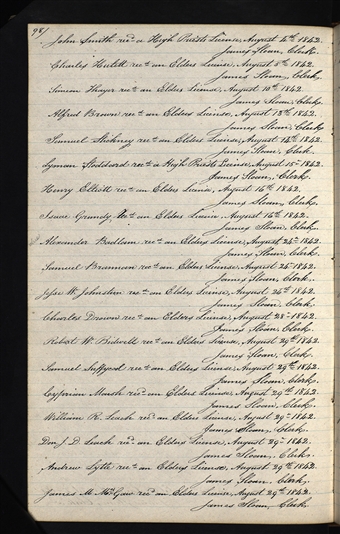 98/
John Smith recd a High Priests License, August 4th 1842.
James Sloan, Clerk.
Charles Hulett rect an Elders License, August 8th 1842.
James Sloan, Clerk,
Simeon Thayer rect an Elders License, August 10th 1842.
James Sloan, Clerk,
Alfred Brown rect an Elders License, August 13th 1842.
James Sloan, Clerk,
Samuel Stickney rect an Elders License, August 14th 1842.
James Sloan, Clerk.
Lyman Stoddard rect a High Priests License, August 15th 1842.
James Sloan, Clerk,
Henry Elliott rect an Elders License, August 16th 1842.
James Sloan, Clerk,
Isaac Grundy rect an Elders License, August 16th 1842.
James Sloan, Clerk.
Alexander Badlam rect an Elders License, August 24th 1842.
James Sloan, Clerk.
Samuel Brannan rect an Elders License, August 24th 1842.
James Sloan, Clerk.
Jesse W. Johnston rect an Elders License, August 26th 1842.
James Sloan, Clerk.
Charles Drown rect an Elders License, August 28th 1842.
James Sloan, Clerk.
Robert W. Bidwell rect an Elders License, August 29th 1842.
James Sloan, Clerk.
Samuel rect an Elders License, August 29th 1842.
James Sloan, Clerk.
Cyprian Marsh recd an Elders License, August 29th 1842.
James Sloan, Clerk.
William R. Leach recd an Elders License, August 29th 1842.
James Sloan, Clerk.
J. D. Leach recd an Elders License, August 29th 1842.
James Sloan, Clerk.
Andrew Lytle recd an Elders License, August 29th 1842.
James Sloan, Clerk,
James M. McGaw recd an Elders License, August 29th 1842.
James Sloan, Clerk.